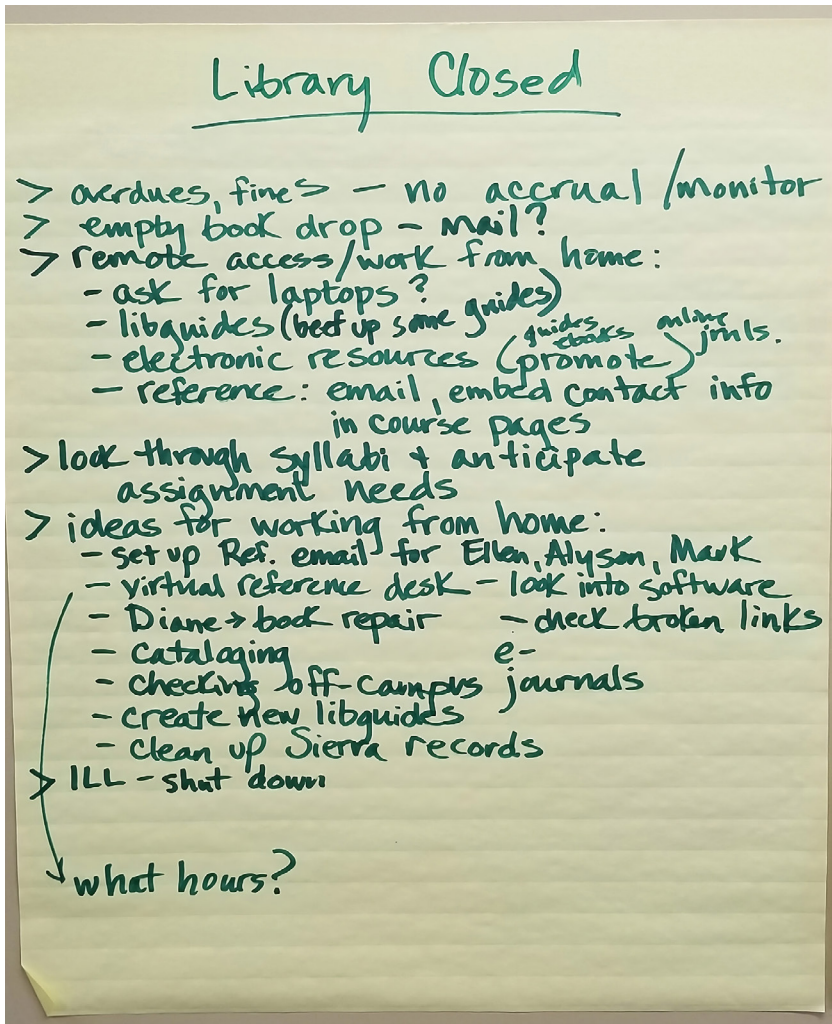 Library Closed
> overdues, fines – no accrual / monitor
> empty book drop – mail?
> remote access/work from home:
- ask for laptops?
- libguides (beef up some guides)
guides ebooks online jrnls.
- electronic resources (promote)
- reference: email, embed contact info
in course pages
> look through syllabi + anticipate
assignment needs
> ideas for working from home:
- set up Ref. email for Ellen, Alyson, Mark
- virtual reference desk – look into software
- Diane → book repair – check broken links
- cataloging
- checking off-campus e-journals
- create new libguides
- clean up Sierra records
> ILL – shut down
what hours?